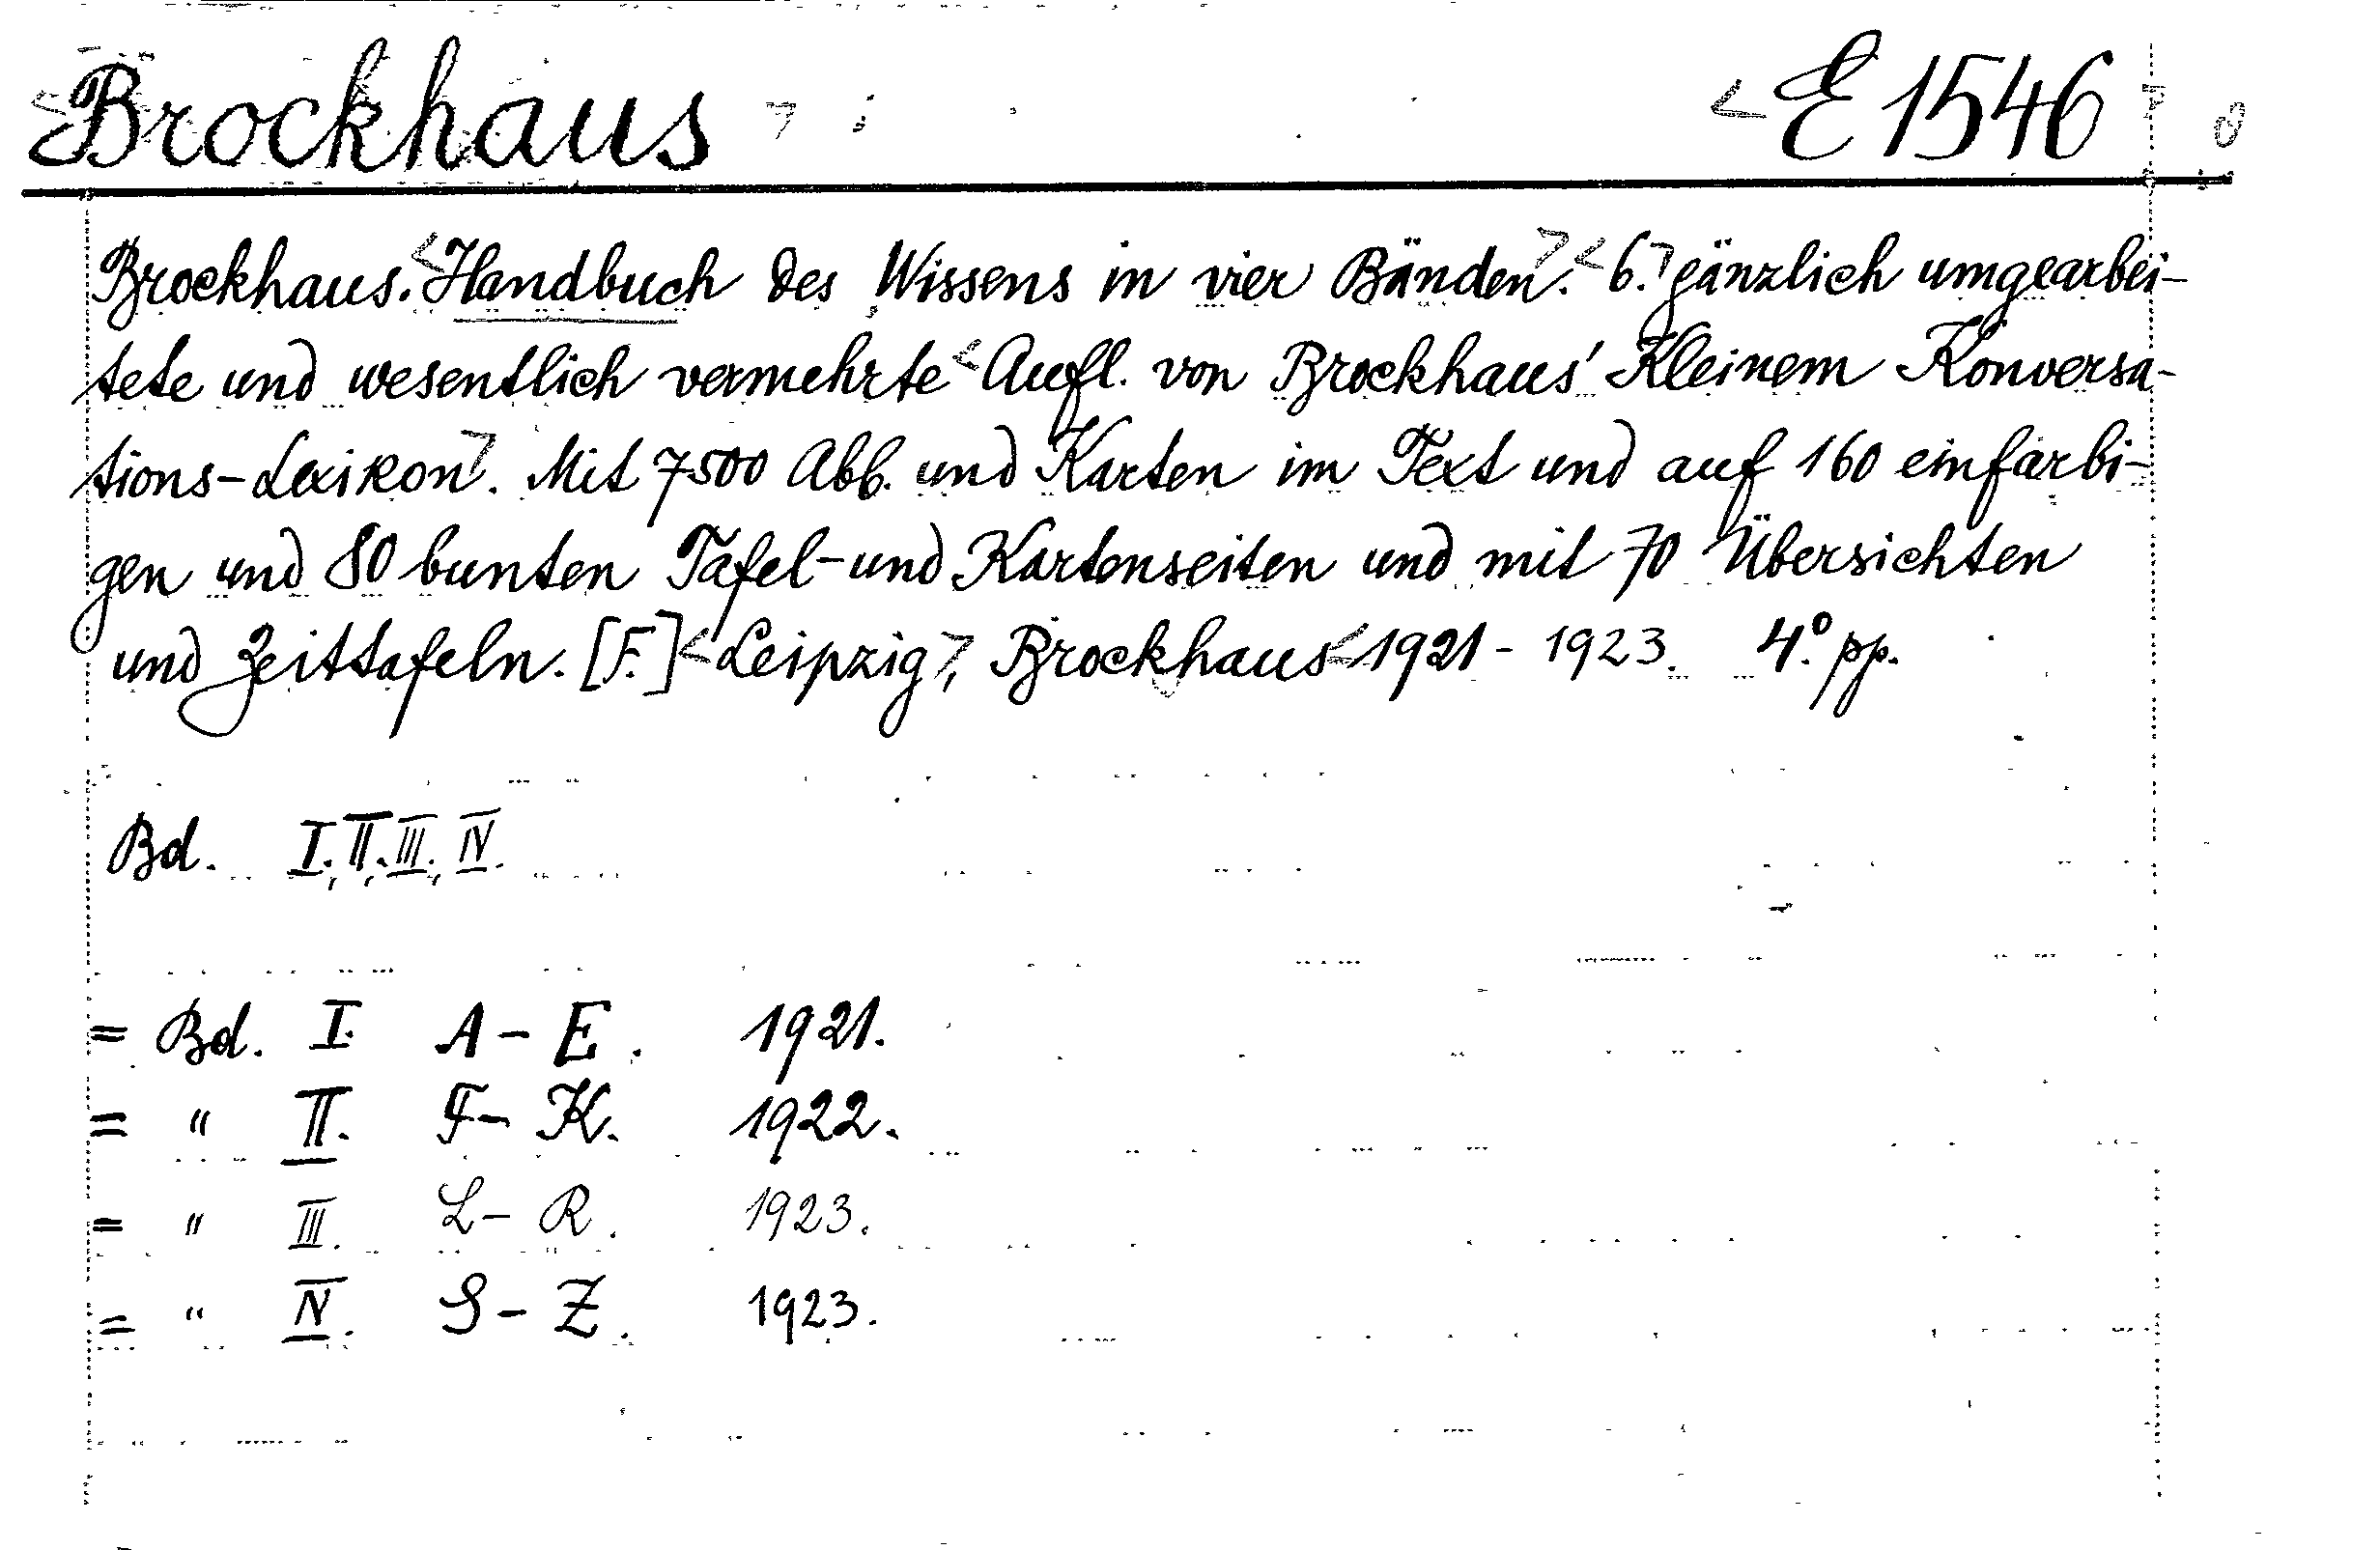 Brockhaus E 1546
Brockhaus. Handbuch des Wissens in vier Bänden. 6. gänzlich umgearbei-
tete und wesentlich vermehrte Aufl. von Brockhaus' Kleinem Konversa-
tions-Lexikon. Mit 7500 Abb. und Karten im Text und auf 160 einfarbi-
gen und 80 bunten Tafel- und Kartenseiten und mit 70 Übersichten
und Zeittafeln. [F.] Leipzig, Brockhaus 1921 - 1923. 4.° pp.
Bd. I., II., III., IV.
= Bd. I. A - E. 1921.
= " II. F - K. 1922.
= " III. L - R. 1923.
= " IV. S - Z. 1923.